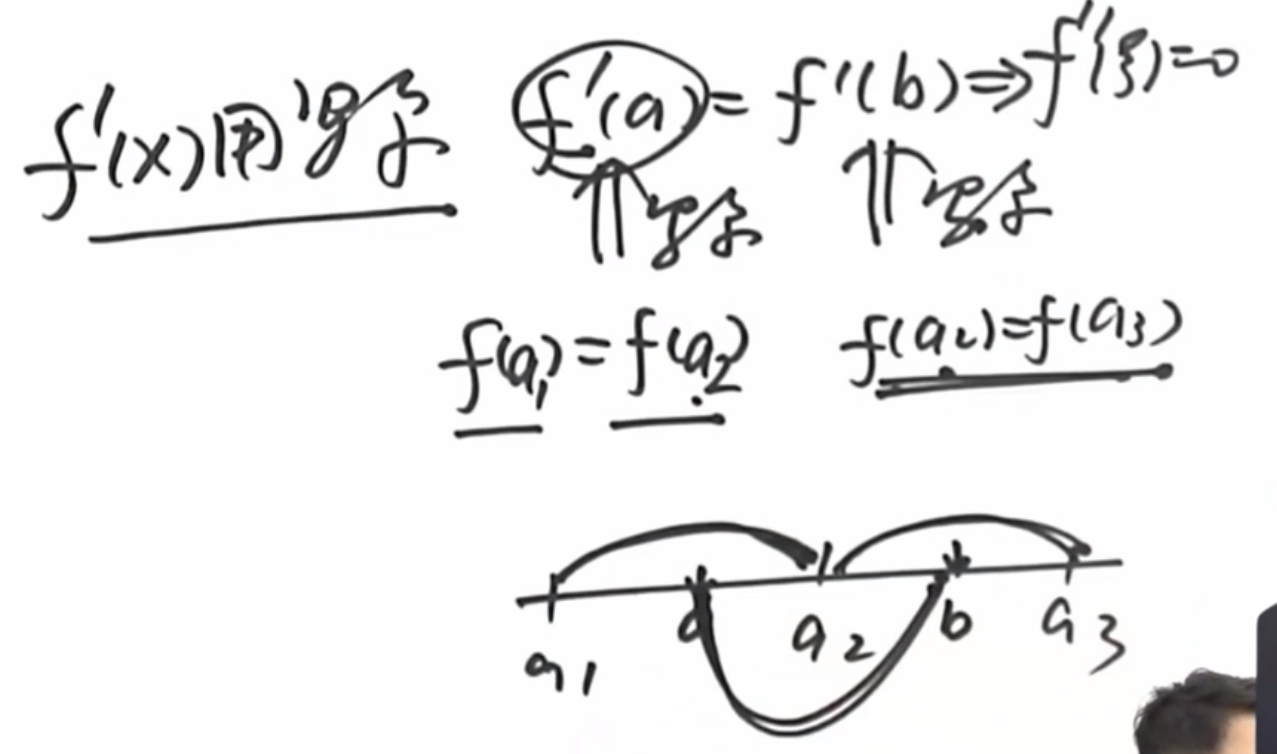 f'(x)用罗尔 f'(a) = f'(b) ⇒ f''(ξ)=0
⇑罗尔 ⇑罗尔
f(a₁) = f(a₂) f(a₂)=f(a₃)
a₁ a a₂ b a₃